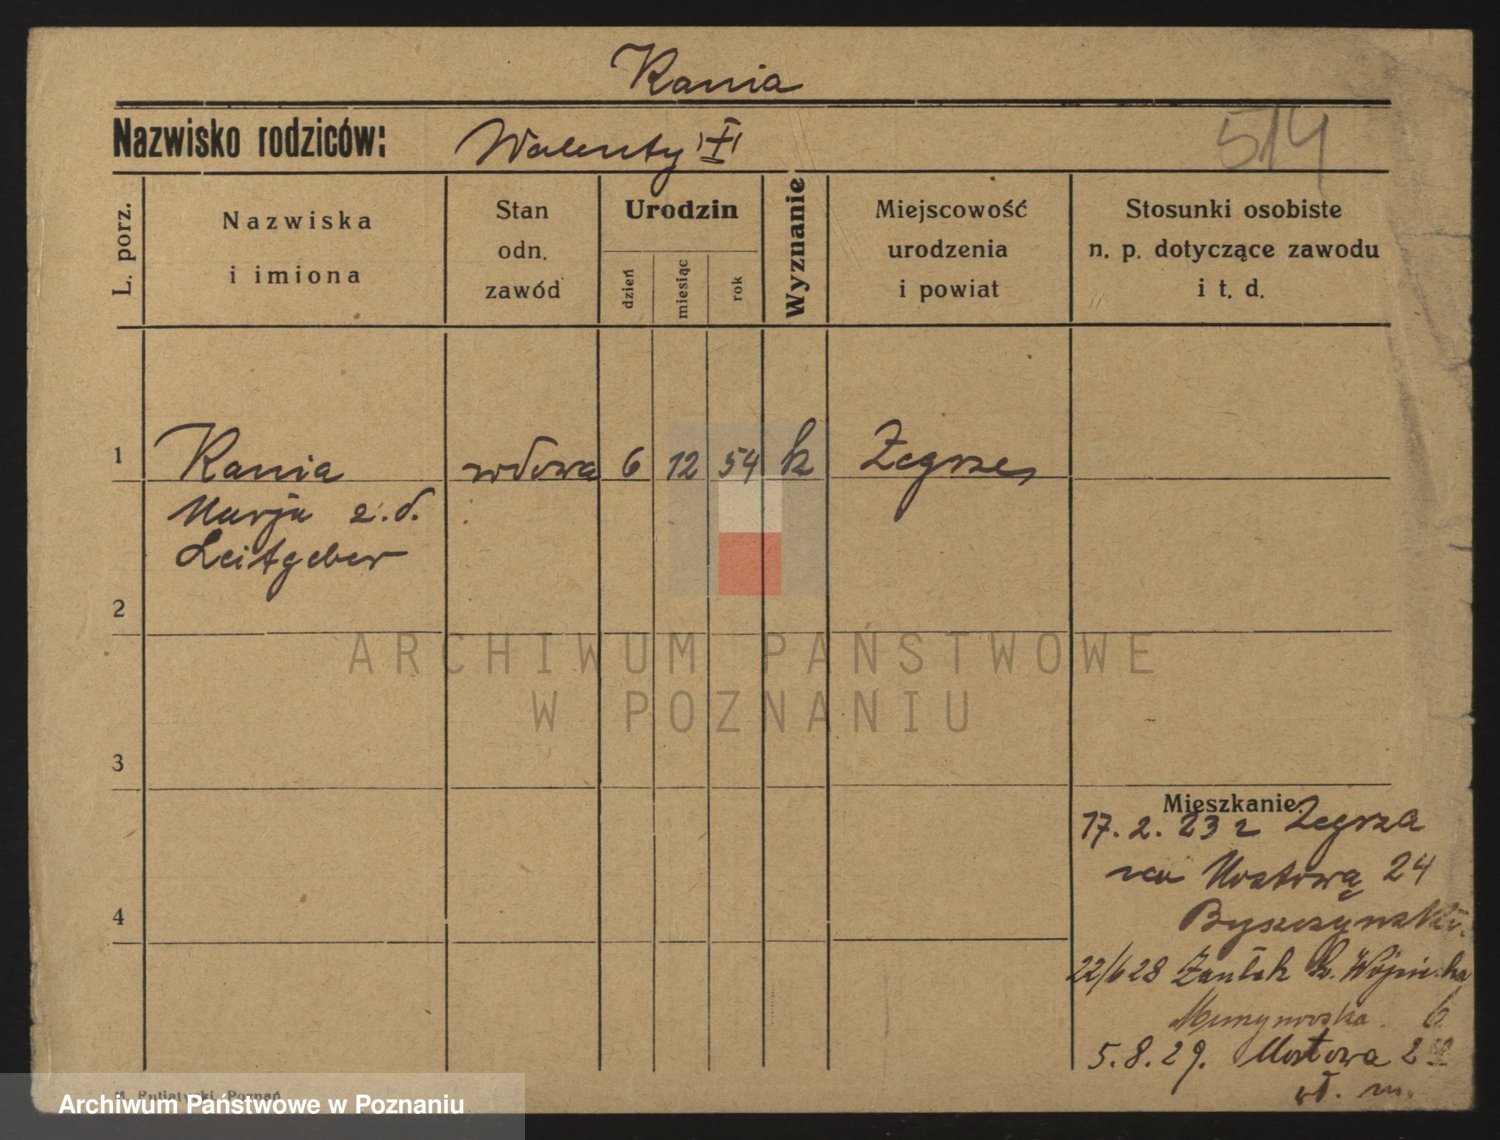 Kania
Nazwisko rodziców: Walenty
514
L. porz.
Nazwiska
i imiona
Stan
odn.
zawód
Urodzin
dzień
miesiąc
rok
Wyznanie
Miejscowość
urodzenia
i powiat
Stosunki osobiste
n. p. dotyczące zawodu
i t. d.
1 Kania wdowa 6 12 54 k Zegrze
Marja z. d.
Leitgeber
2
ARCHIWUM PAŃSTWOWE
W POZNANIU
3
Mieszkanie
17. 2. 23 z Zegrza
na Mostową 24
4
Byszczynski.
22/6 28 Zaułek
5. 8. 29. Mostowa
wł. m.
Archiwum Państwowe w Poznaniu